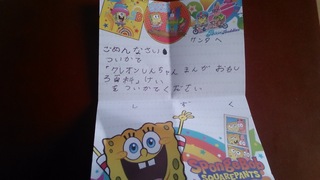 ケンタへ
ごめんなさい
ついかで
「クレオンしんちゃん まんが おもし
ろ百科」けい
をついかでください
しずく
SpongeBob
SQUAREPANTS